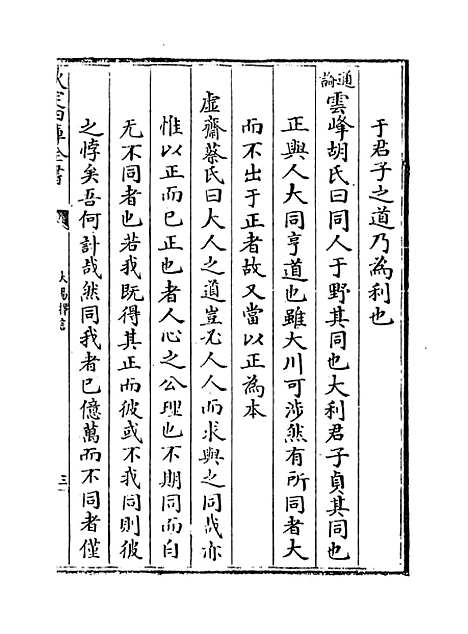 于君子之道乃為利也
通論
雲峰胡氏曰同人于野其同也大利君子貞其同也
正與人大同亨道也雖大川可渉然有所同者大
而不出于正者故又當以正為本
虛齋蔡氏曰大人之道豈必人人而求與之同哉亦
惟以正而已正也者人心之公理也不期同而自
无不同者也若我既得其正而彼或不我同則彼
之悖矣吾何計哉然同我者已億萬而不同者僅
欽定四庫全書
大易擇言
三